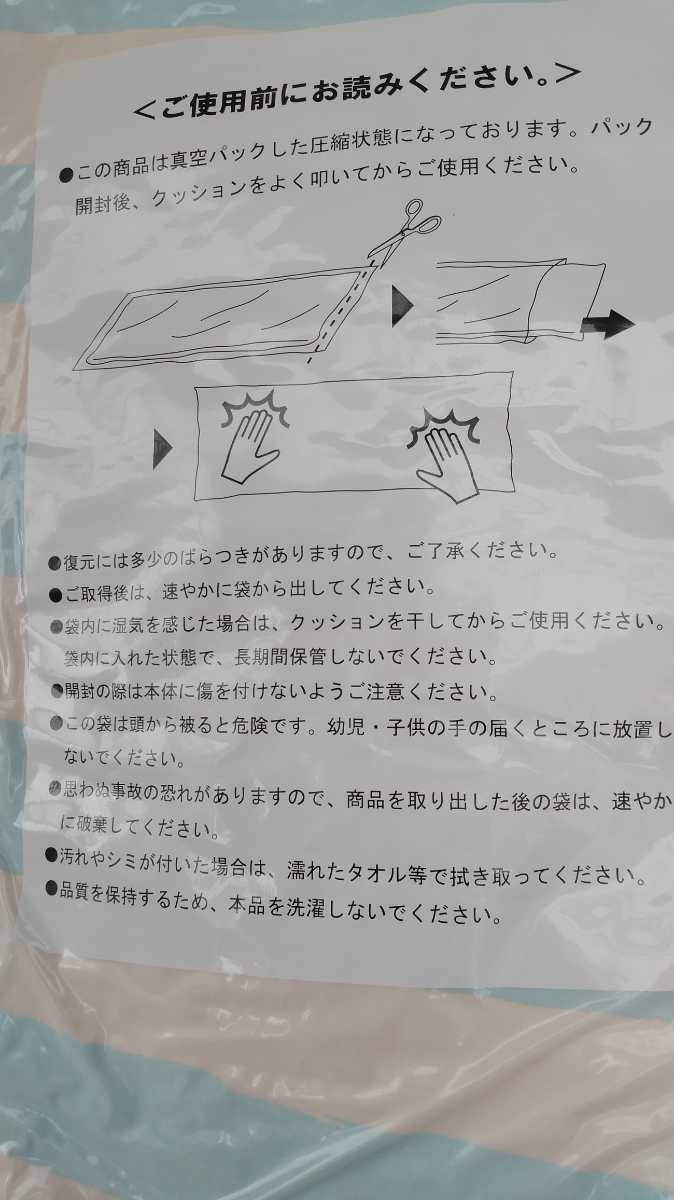 ＜ご使用前にお読みください。＞
●この商品は真空パックした圧縮状態になっております。パック
開封後、クッションをよく叩いてからご使用ください。
●復元には多少のばらつきがありますので、ご了承ください。
●ご取得後は、速やかに袋から出してください。
●袋内に湿気を感じた場合は、クッションを干してからご使用ください。
袋内に入れた状態で、長期間保管しないでください。
●開封の際は本体に傷を付けないようご注意ください。
●この袋は頭から被ると危険です。幼児・子供の手の届くところに放置し
ないでください。
●思わぬ事故の恐れがありますので、商品を取り出した後の袋は、速やか
に破棄してください。
●汚れやシミが付いた場合は、濡れたタオル等で拭き取ってください。
●品質を保持するため、本品を洗濯しないでください。